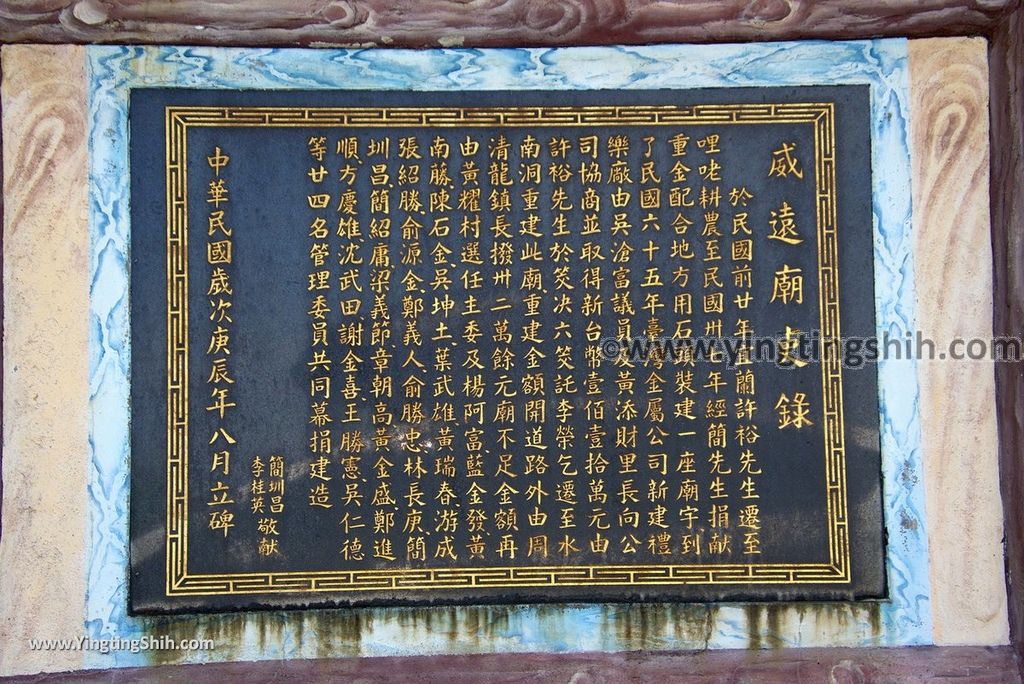 威遠廟史錄
於民國前廿年宜蘭許裕先生遷至
哩咾耕農至民國卅七年經簡先生捐献
重金配合地方用石頭裝建一座廟宇到
了民國六十五年臺灣金屬公司新建禮
樂廠由吳滄富議員及黃添財里長向公
司協商並取得新台幣壹佰壹拾萬元由
許裕先生於筊决六筊託李榮乞遷至水
南洞重建此廟、重建金額開道路外由周
清龍鎮長撥卅二萬餘元廟不足金額再
由黃耀村選任主委及楊阿富、藍金發、黃
南勝、陳石金、吳坤土、葉武雄、黃瑞春、游成
張紹勝、俞源金、鄭義人、俞勝忠、林長庚、簡
圳昌、簡紹庸、梁義節、章朝高、黃金盛、鄭進
順、方慶雄、沈武田、謝金喜、王勝憲、吳仁德
等廿四名管理委員共同募捐建造
簡圳昌
李桂英 敬献
中華民國歲次庚辰年八月立碑
©www.yingtingshih.com
http://www.YingtingShih.com